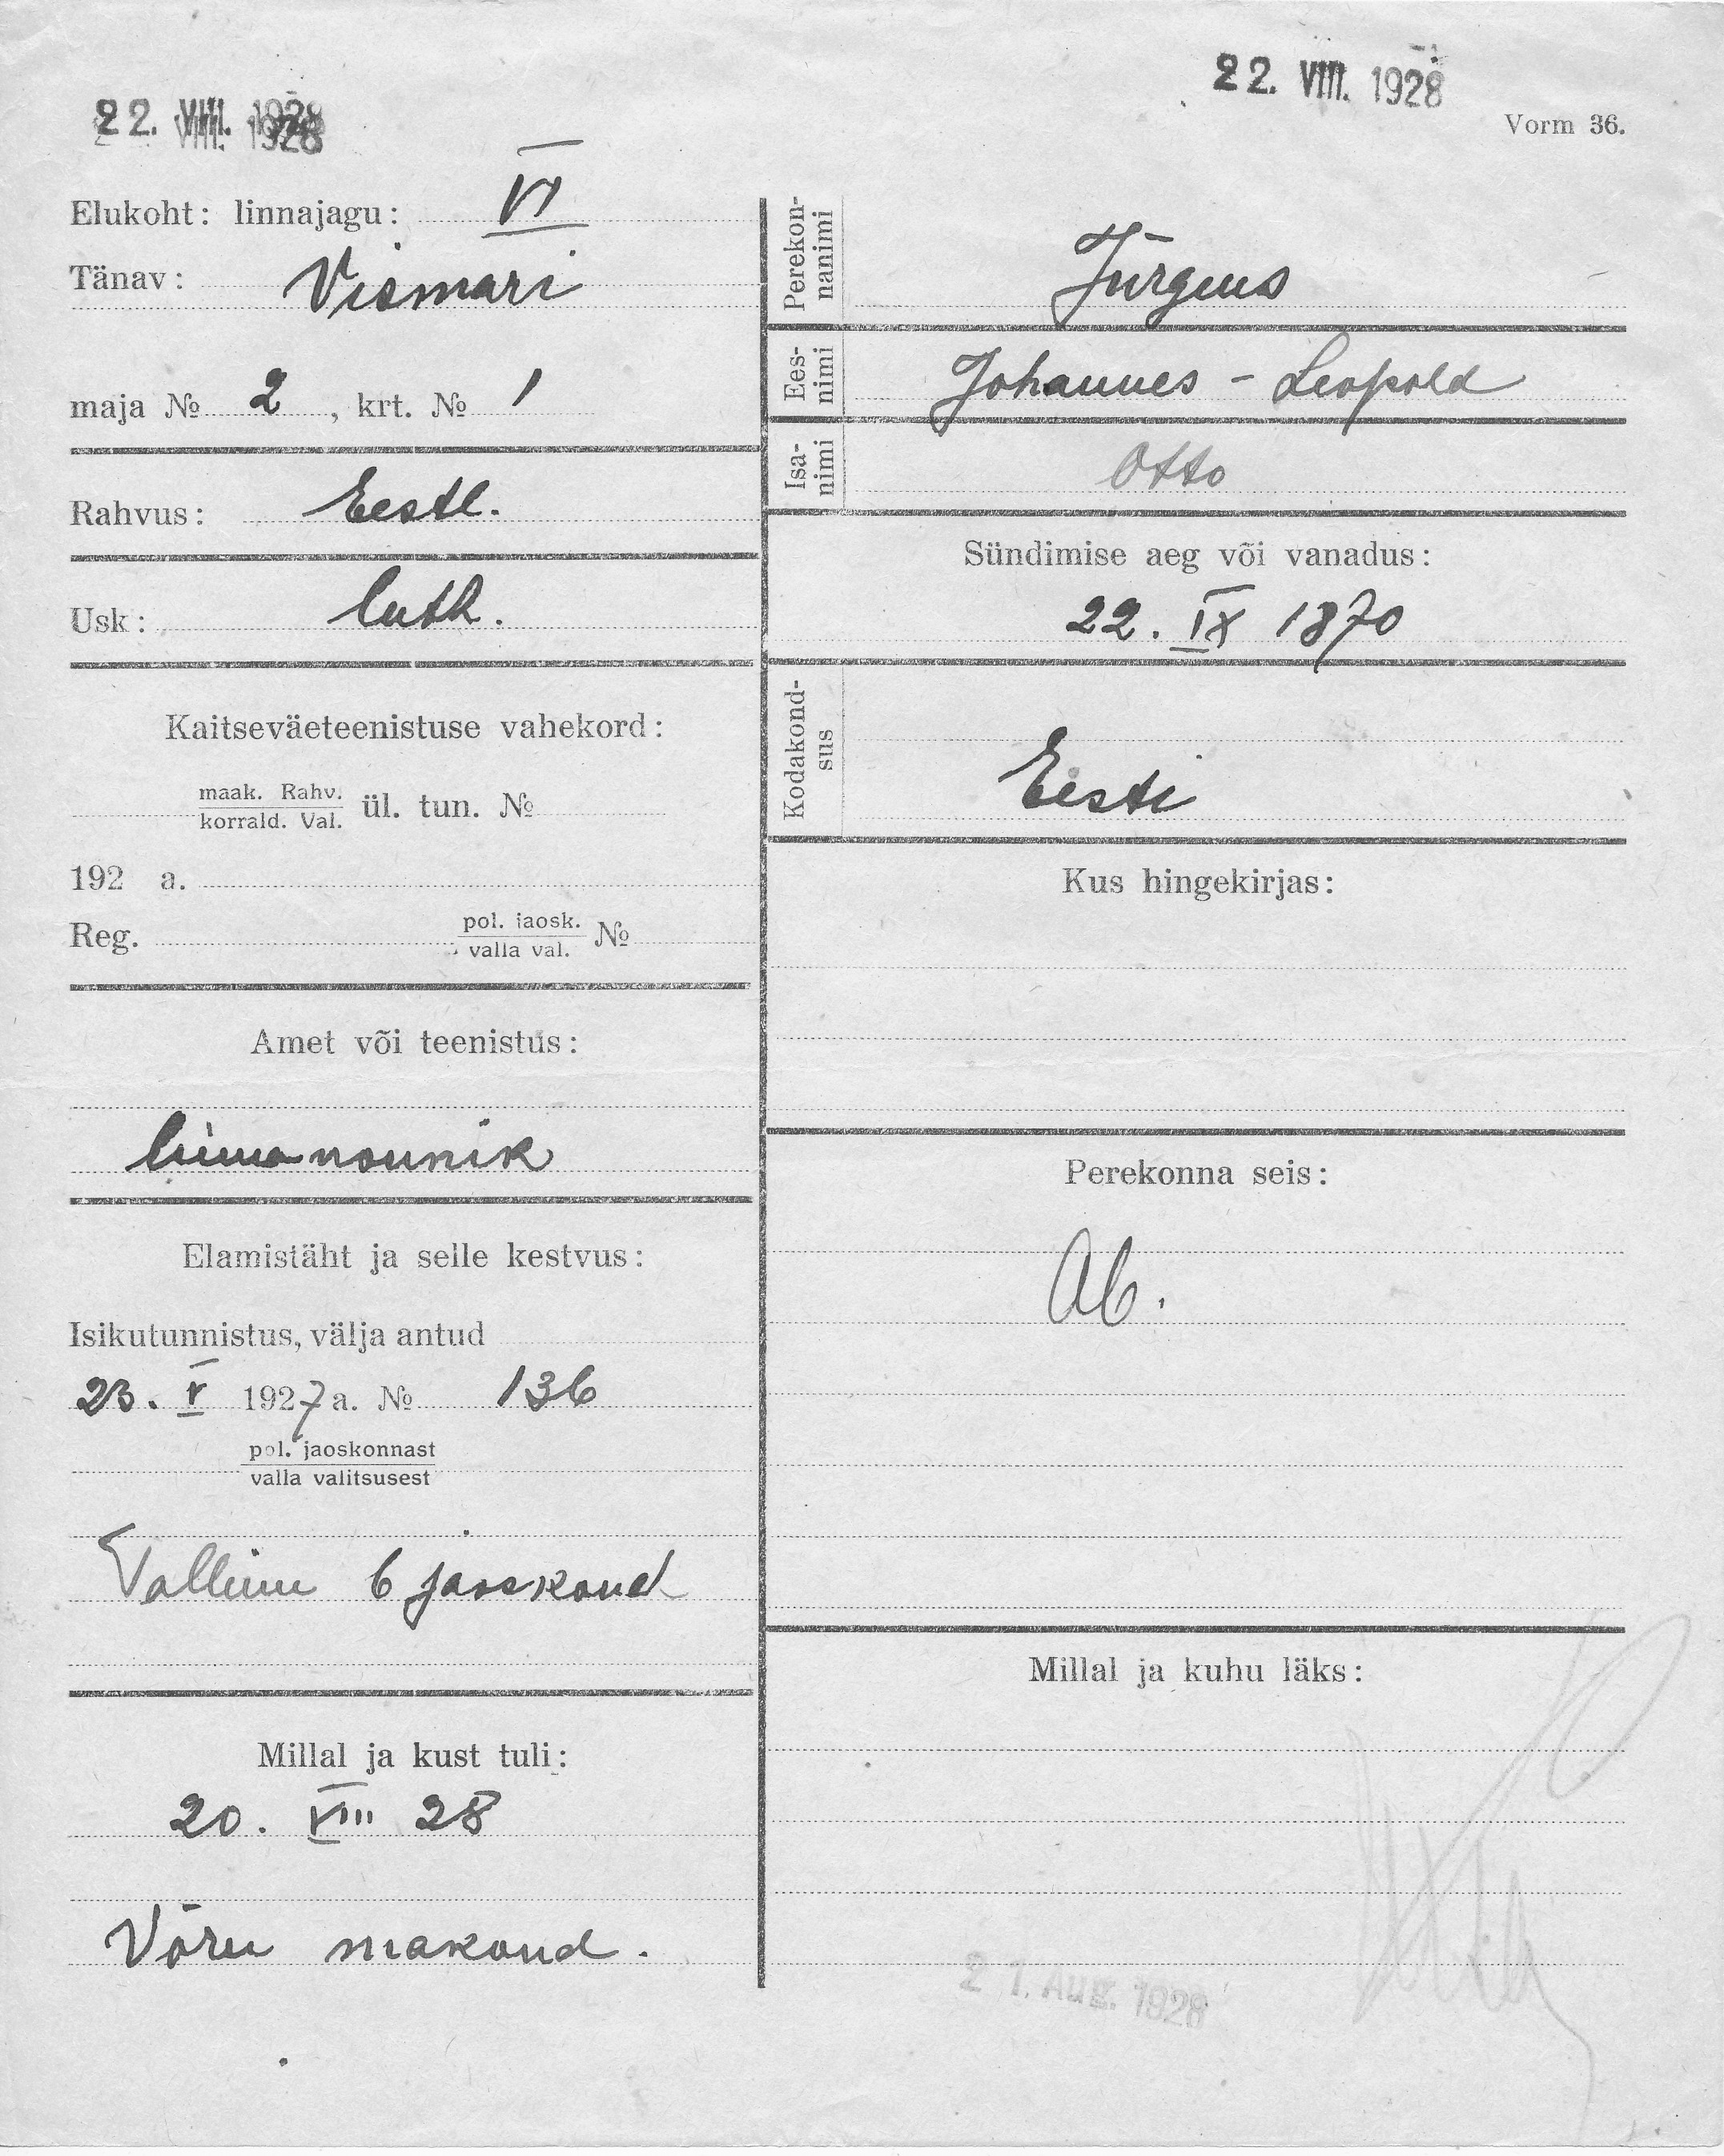 22. VIII. 1928
22. VIII. 1928
Vorm 36.
Elukoht: linnajagu: VI
Tänav: Vismari
maja № 2, krt. № 1
Rahvus: Eestl.
Usk: luth.
Kaitseväeteenistuse vahekord:
maak. Rahv.
korrald. Val.
ül. tun. №
192 a.
Reg. pol. jaosk.
valla val. №
Amet või teenistus:
linnanounik
Elamistäht ja selle kestvus:
Isikutunnistus, välja antud
23. V 1927 a. № 136
pol. jaoskonnast
valla valitsusest
Tallinn 6 jaoskond
Millal ja kust tuli:
20. VIII 28
Võru makond.
Perekon-
nanimi
Jürgens
Ees-
nimi
Johannes - Leopold
Isa-
nimi
Otto
Sündimise aeg või vanadus:
22. IX 1870
Kodakond-
sus
Eesti
Kus hingekirjas:
Perekonna seis:
Ab.
Millal ja kuhu läks:
21. AUG. 1928